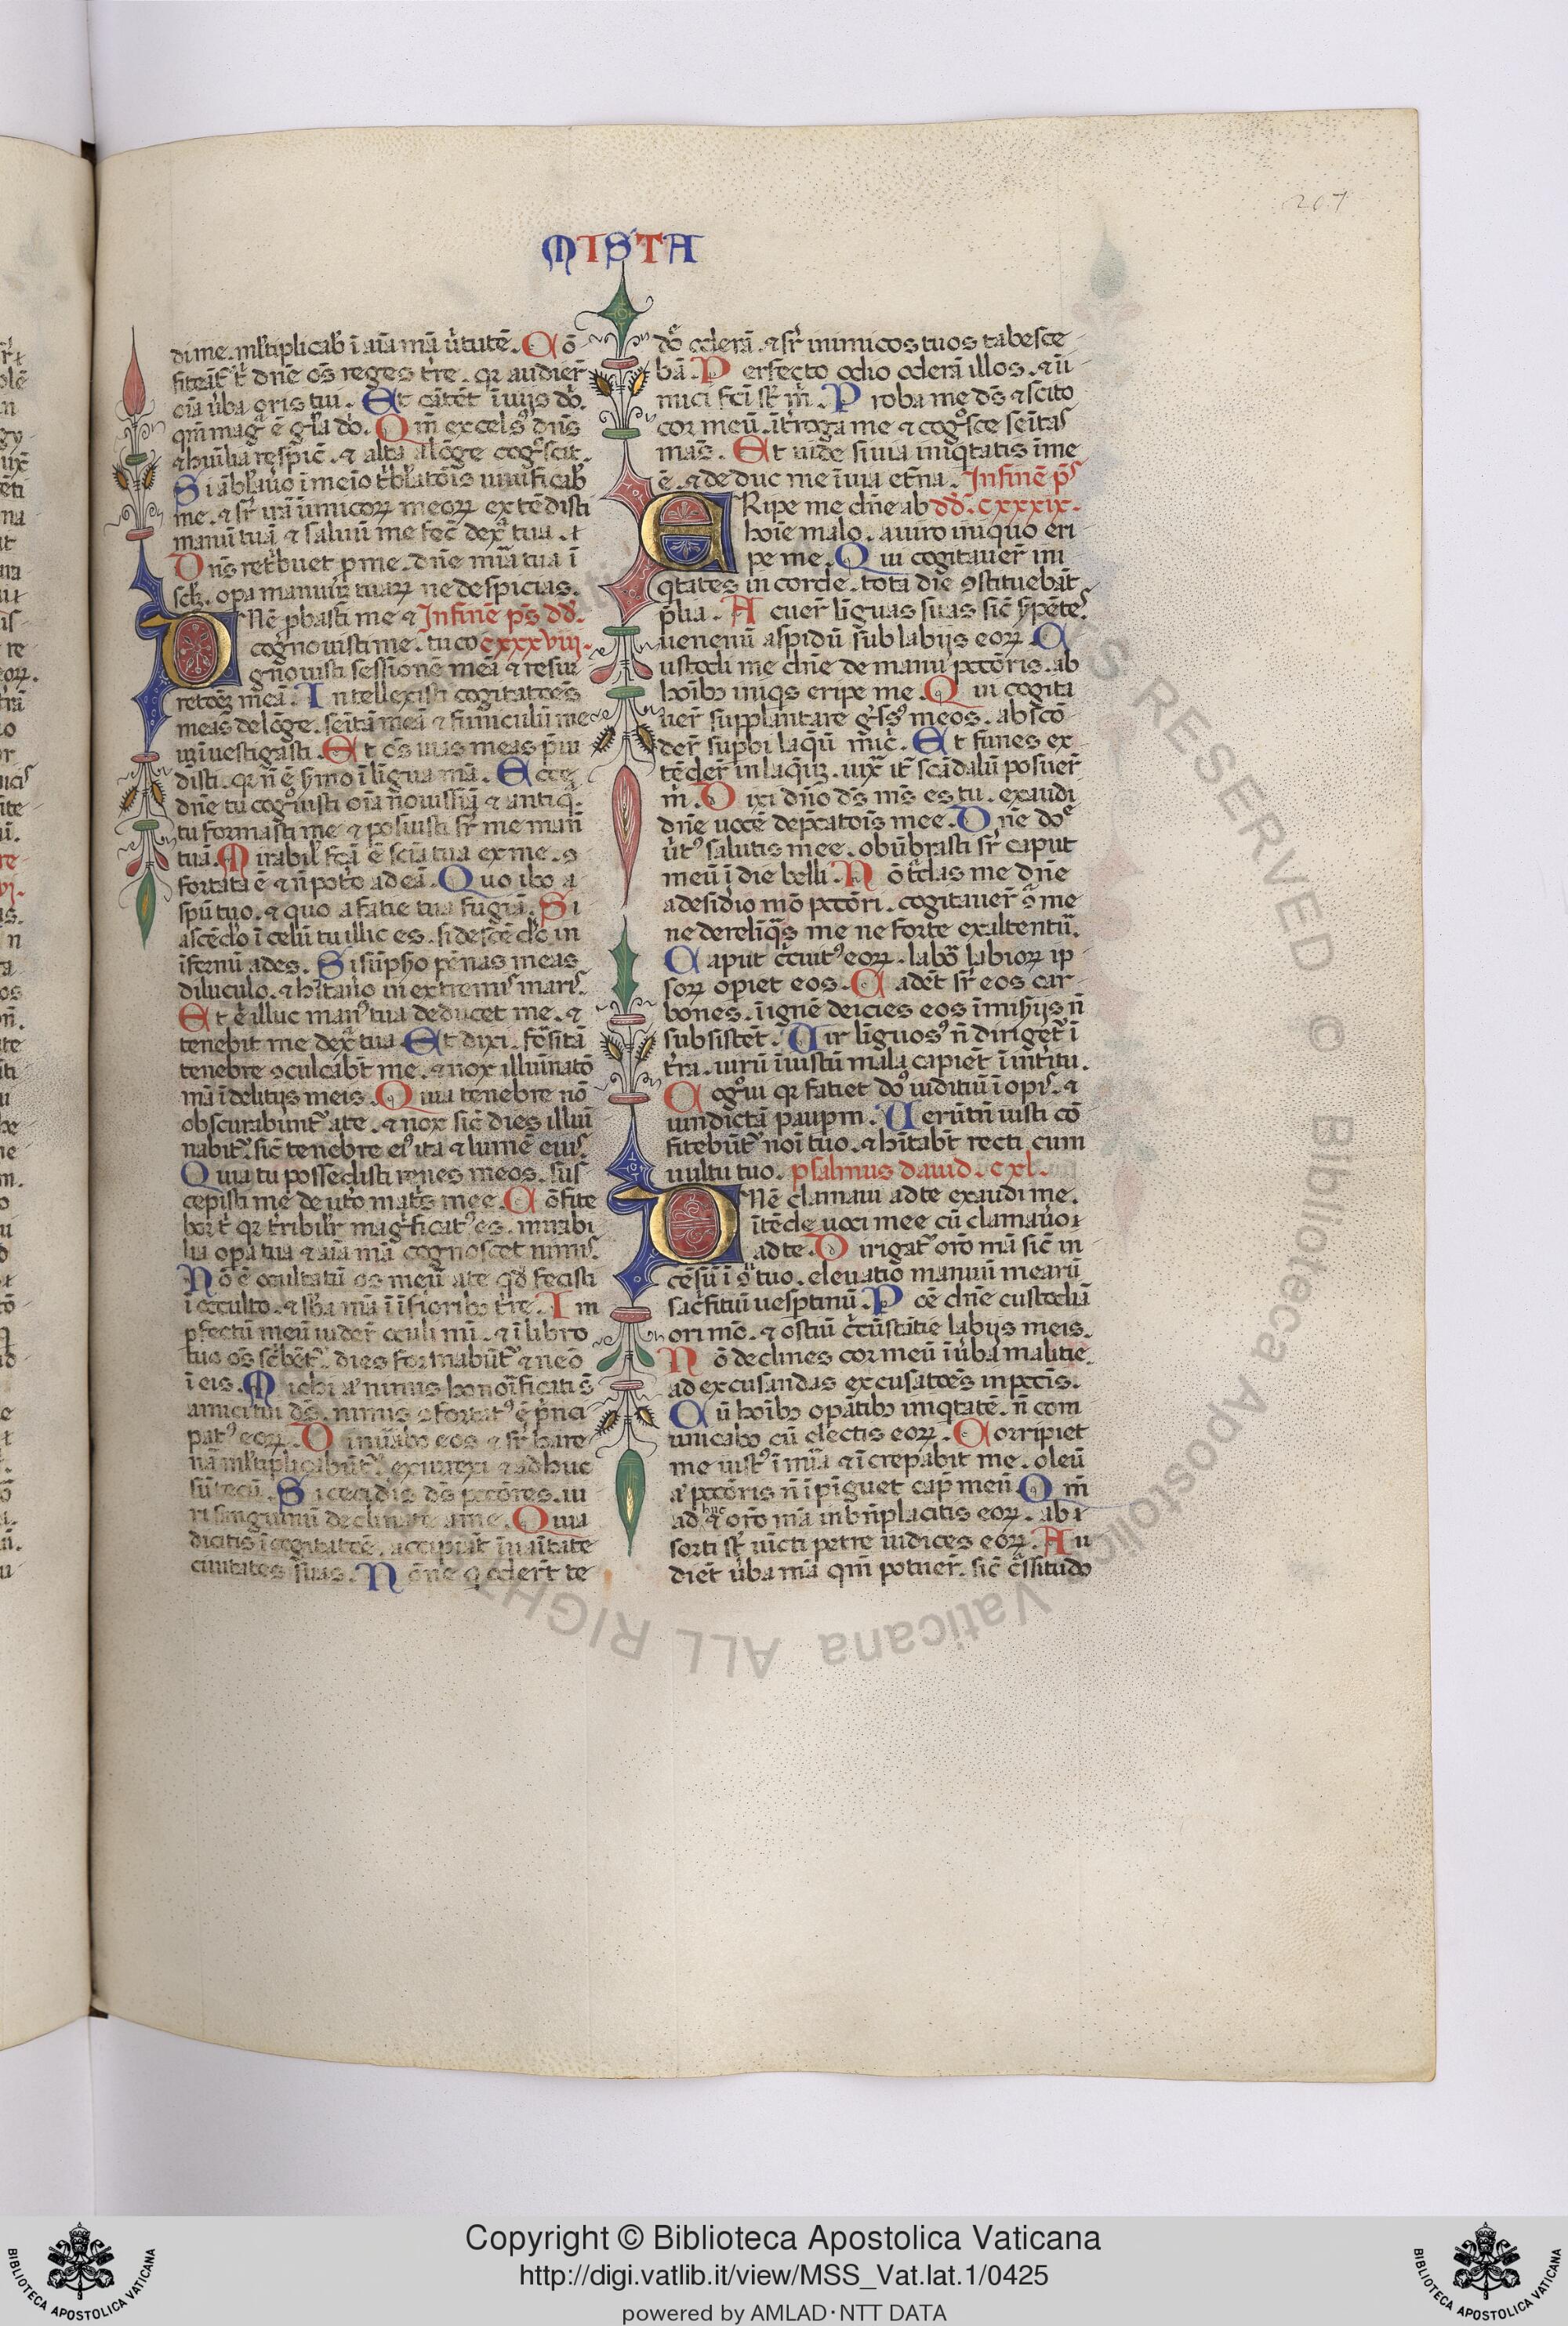 207
MISTA
di me. ml̄tiplicab̄ ī aīa mā ūtutē. Cō
fiteāt̄ t̄ dn̄e oēs reges tr̄e. qr audier̄
oīa ūba oris tui. Et cātēt ī uijs dō.
qm̄ mag̃ ē gl̄a dō. Qm̄ excelsꝰ dn̄s
& huīlia respic̄. & alta alōge cogͦscit.
Si ābl̄auo ī meīo tr̄bl̄atōis uiuificab̄
me. & sr̄ irā īimicoꝝ meoꝝ extēdisti
manū tuā & saluū me fec̄ dex̃ tua.
Dn̄s ret̄buet p me. dn̄e mīa tua ī
sc̄lꝫ. opa manuū tuaꝝ ne despicias.
DNē pbasti me & In finē ps̄ dd̄.
cognouisti me. tu co cxxxviii.
gnouisti sessionē meā & resur
retōeꝫ meā. Intellexisti cogitatōes
meas delōge. sēitā meā & funiculū me
uīuestigasti. Et oēs uias meas p̄ui
disti. qr n̄ ē s̄mo ī lingua mā. Ecce
dn̄e tu cogͦuisti oīa nouissīa & antiq̃.
tu formasti me & posuisti sr̄ me manū
tuā. Mirabil̄ fcā ē sciā tua ex me. ꝯ
fortata ē & n̄ potō ad eā. Quo ibo a
spū tuo. & quo a fatie tua fugiā. Si
ascēdo ī celū tu illic es. si descēdō in
īfernū ades. Si sūpsō pēnas meas
diluculo. & hītauo in extremis maris.
Et ē illuc manꝰ tua deducet me. &
tenebit me dex̃ tua. Et dixi. fōsitā
tenebre ꝯculcabt̄ me. & nox illuīnatō
mā ī delitijs meis. Quia tenebre nō
obscurabunt̄ a te. & nox sic̄ dies illui
nabit̄. sic̄ tenebre eiꝰ ita & lumē eius.
Quia tu possedisti renes meos. sus
cepisti me de ut̄o mat̄s mee. Cōfite
bor t̄ qr t̄ribilr̄ mag̃ficatꝰ es. mirabi
lia opa tua & aīa mā cognoscet nimis.
Nō ē occultatū os meū a te qd̄ fecisti
ī occulto. & sb̄a mā ī īferiorib tr̄e. Im
pfectū meū uider̄ oculi mī. & ī libro
tuo oēs sc̄bēt̄. dies formabūt̄ & nēo
ī eis. Michi aꝰ nimis honorificati s̄
amici tui ds̄. nimis ꝯfortatꝰ ē p̄nci
patꝰ eoꝝ. Dinūabo eos & sr̄ hare
nā ml̄tiplicabūt̄. exurrexi & adhuc
sū tecū. Si occidis ds̄ pctōres. ui
ri sanguinū declinate a me. Quia
dicitis ī cogitatōe. accipiāt ī uaītate
ciuitates suas. Nōne q odert̄ te
dn̄e oderā. & sr̄ inimicos tuos tabesce
bā. Perfecto odio oderā illos. & ini
mici fcī st̄ m̄. Proba me ds̄ & scito
cor meū. īt̄roga me & cogͦsce sēitas
mas̄. Et uide si uia iniq̄tatis ī me
ē. & deduc me ī uia et̄na. In finē ps̄
ERipe me dn̄e ab dd̄. cxxxix.
hoīe malo. a uiro iniquo eri
pe me. Qui cogitauer̄ ini
q̄tates in corde. tota die ꝯstituebāt
p̄lia. Acuer̄ liguas suas sic̄ s̄pētes
uenenū aspidū sub labijs eoꝝ. C
ustodi me dn̄e de manu pctōris. ab
hoībꝫ iniq̄s eripe me. Qui cogita
uer̄ supplantare g̃ssꝰ meos. abscō
der̄ supbi laq̄ū mic̄. Et funes ex
tēder̄ in laq̄ūꝫ. iuxͣ it̄ scādalū posuer̄
m̄. Dixi dn̄o ds̄ ms̄ es tu. exaudi
dn̄e uocē depcatōis mee. Dn̄e dn̄e
ūtꝰ salutis mee. obūbrasti sr̄ caput
meū ī die belli. Nō t̄das me dn̄e
a desidio mō pctōri. cogitauer̄ ꝯ me
ne dereliq̄s me ne forte exaltent̄.
Caput c̄cuitꝰ eoꝝ. labō labioꝝ ip
soꝝ opiet eos. Cadēt sr̄ eos car
bones. ī ignē deicies eos ī mis̄ijs n̄
subsistēt. Uir liguosꝰ n̄ diriget̄ ī
tr̄a. uirū īiustū mala capiēt ī intitu.
Cogͦui qr fatiet dn̄s iuditiū īopis. &
uindictā paupm. Uerūtn̄ iusti cō
fitebūt̄ noī tuo. & hītabt̄ recti cum
uultu tuo. psalmus dauid. cxl.
DNē clamaui ad te exaudi me.
ītēde uoci mee cū clamauo
ad te. Dirigat̄ orō mā sic̄ in
cēsū ī ꝯͨ tuo. eleuatio manuū mearū
sac̄fitiū uesptinū. Poē dn̄e custodiā
ori mō. & ostiū c̄cūstātie labijs meis.
Nō declines cor meū ī ūba malitie.
ad excusandas excusatōes in pctīs.
Cū hoībꝫ opātibꝫ iniq̄tatē. n̄ com
unicabo cū electis eoꝝ. Corripiet
me iustꝰ ī mīa & īcrepabit me. oleū
aꝰ pctōris n̄ īpiguet cap̄ meū. Qm̄
adhuc & orō mā in bn̄placitis eoꝝ. ab
sorti st̄ uīcti petre iudices eoꝝ. Au
diēt ūba mā qm̄ potuer̄. sic̄ c̃ssitudo
Copyright © Biblioteca Apostolica Vaticana
http://digi.vatlib.it/view/MSS_Vat.lat.1/0425
powered by AMLAD·NTT DATA
BIBLIOTECA APOSTOLICA VATICANA
BIBLIOTECA APOSTOLICA VATICANA
Biblioteca Apostolica Vaticana ALL RIGHTS RESERVED ©